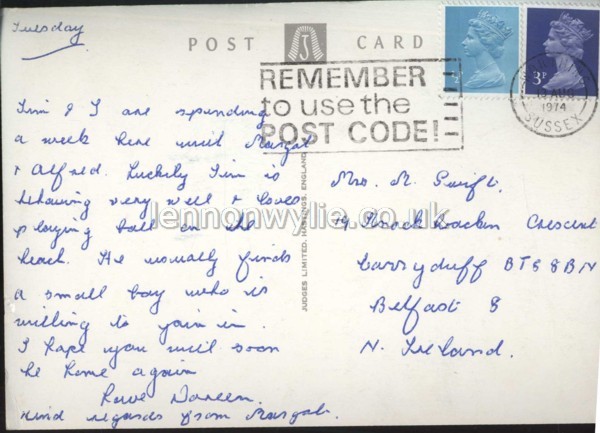 Tuesday
POST CARD
REMEMBER
to use the
POST CODE!
3P
AUG
1974
SUSSEX
Tim & I are spending
a week here with Margot
& Alfred. Luckily Tim is
behaving very well & loves
playing ball on the
beach. He usually finds
a small boy who is
willing to join in.
I hope you will soon
be home again
Love Doreen.
Kind regards from Margot.
JUDGES LIMITED, HASTINGS, ENGLAND
Mrs. M. Swift.
14 Knockbracken Crescent
Carryduff BT8 8BN
Belfast 8
N. Ireland.
lennonwylie.co.uk